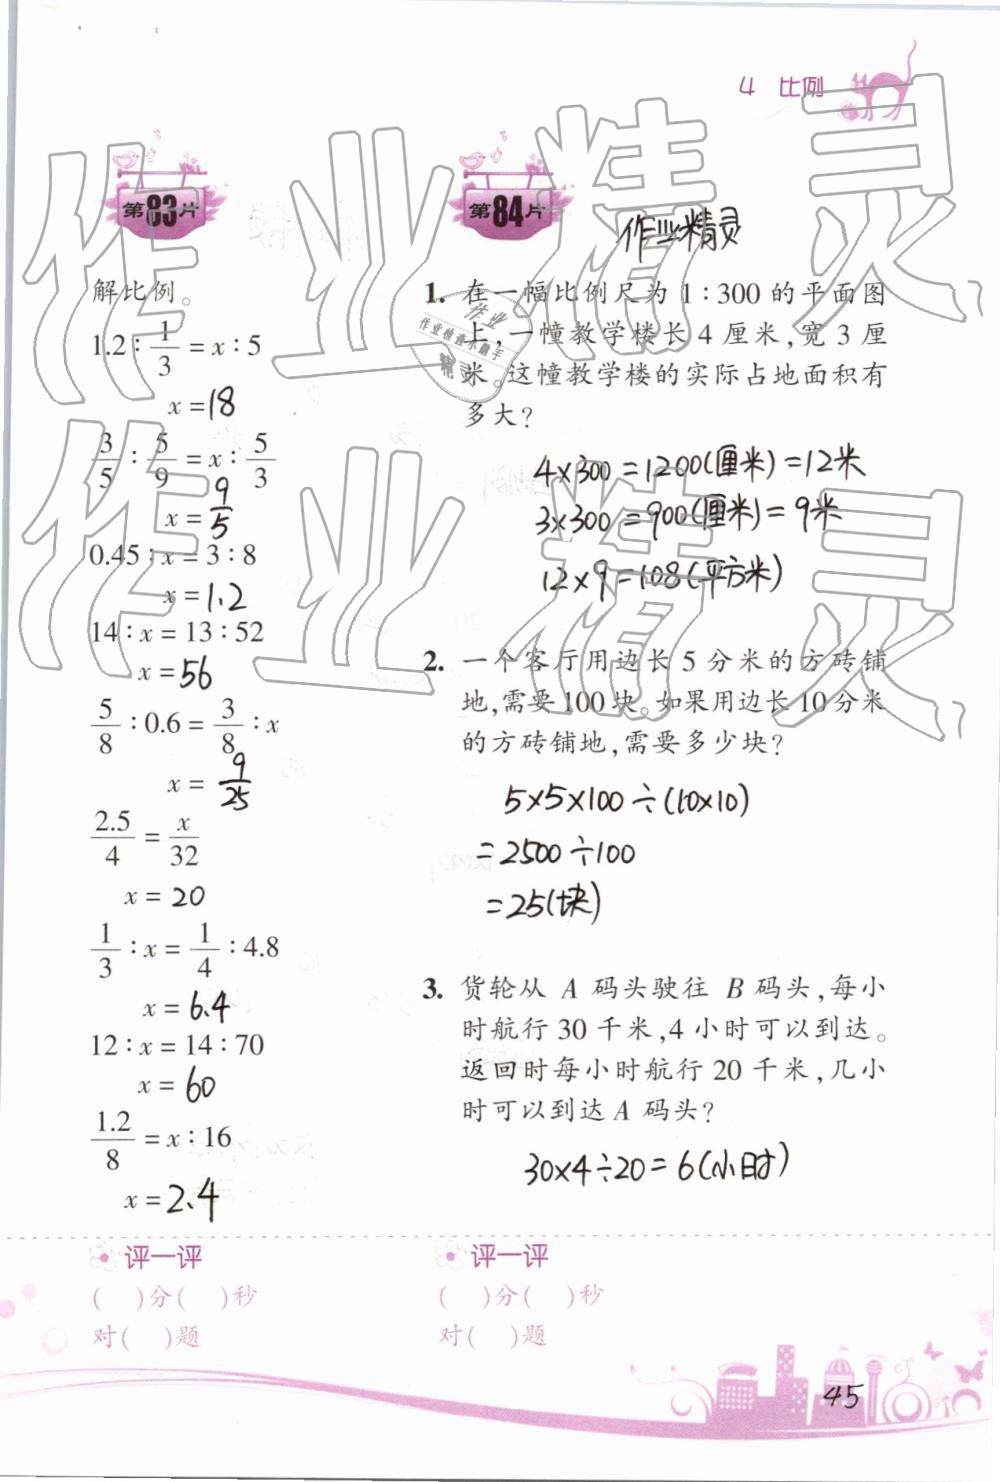 4 比例
第83片
解比例。
1.2 : 1/3 = x : 5
x = 18
3/5 : 5/9 = x : 5/3
x = 9/5
0.45 : x = 3 : 8
x = 1.2
14 : x = 13 : 52
x = 56
5/8 : 0.6 = 3/8 : x
x = 9/25
2.5/4 = x/32
x = 20
1/3 : x = 1/4 : 4.8
x = 6.4
12 : x = 14 : 70
x = 60
1.2/8 = x : 16
x = 2.4
评一评
( )分( )秒
对( )题
第84片
作业精灵
1. 在一幅比例尺为 1 : 300 的平面图
上,一幢教学楼长 4 厘米,宽 3 厘
米。这幢教学楼的实际占地面积有
多大?
4×300=1200(厘米)=12米
3×300=900(厘米)=9米
12×9=108(平方米)
2. 一个客厅用边长 5 分米的方砖铺
地,需要 100 块。如果用边长 10 分米
的方砖铺地,需要多少块?
5×5×100÷(10×10)
=2500÷100
=25(块)
3. 货轮从 A 码头驶往 B 码头,每小
时航行 30 千米,4 小时可以到达。
返回时每小时航行 20 千米,几小
时可以到达 A 码头?
30×4÷20=6(小时)
评一评
( )分( )秒
对( )题
45
作业精灵
作业精灵
作业